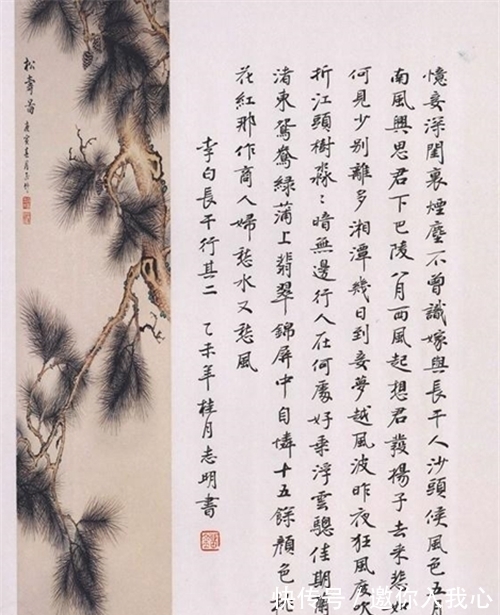 憶妾深閨裏煙塵不曾識嫁與長干人沙頭候風色五月
南風興思君下巴陵八月西風起想君發揚子去來悲
何見少別離多湘潭幾日到妾夢越風波昨夜狂風度吹
折江頭樹淼:暗無邊行人在何處好乘浮雲驄佳期蘭
渚東鴛鴦綠蒲上翡翠錦屏中自憐十五餘顏色
花紅那作商人婦愁水又愁風
李白長干行其二 乙未年桂月志明書
松壽圖
快传号 / 邀你入我心